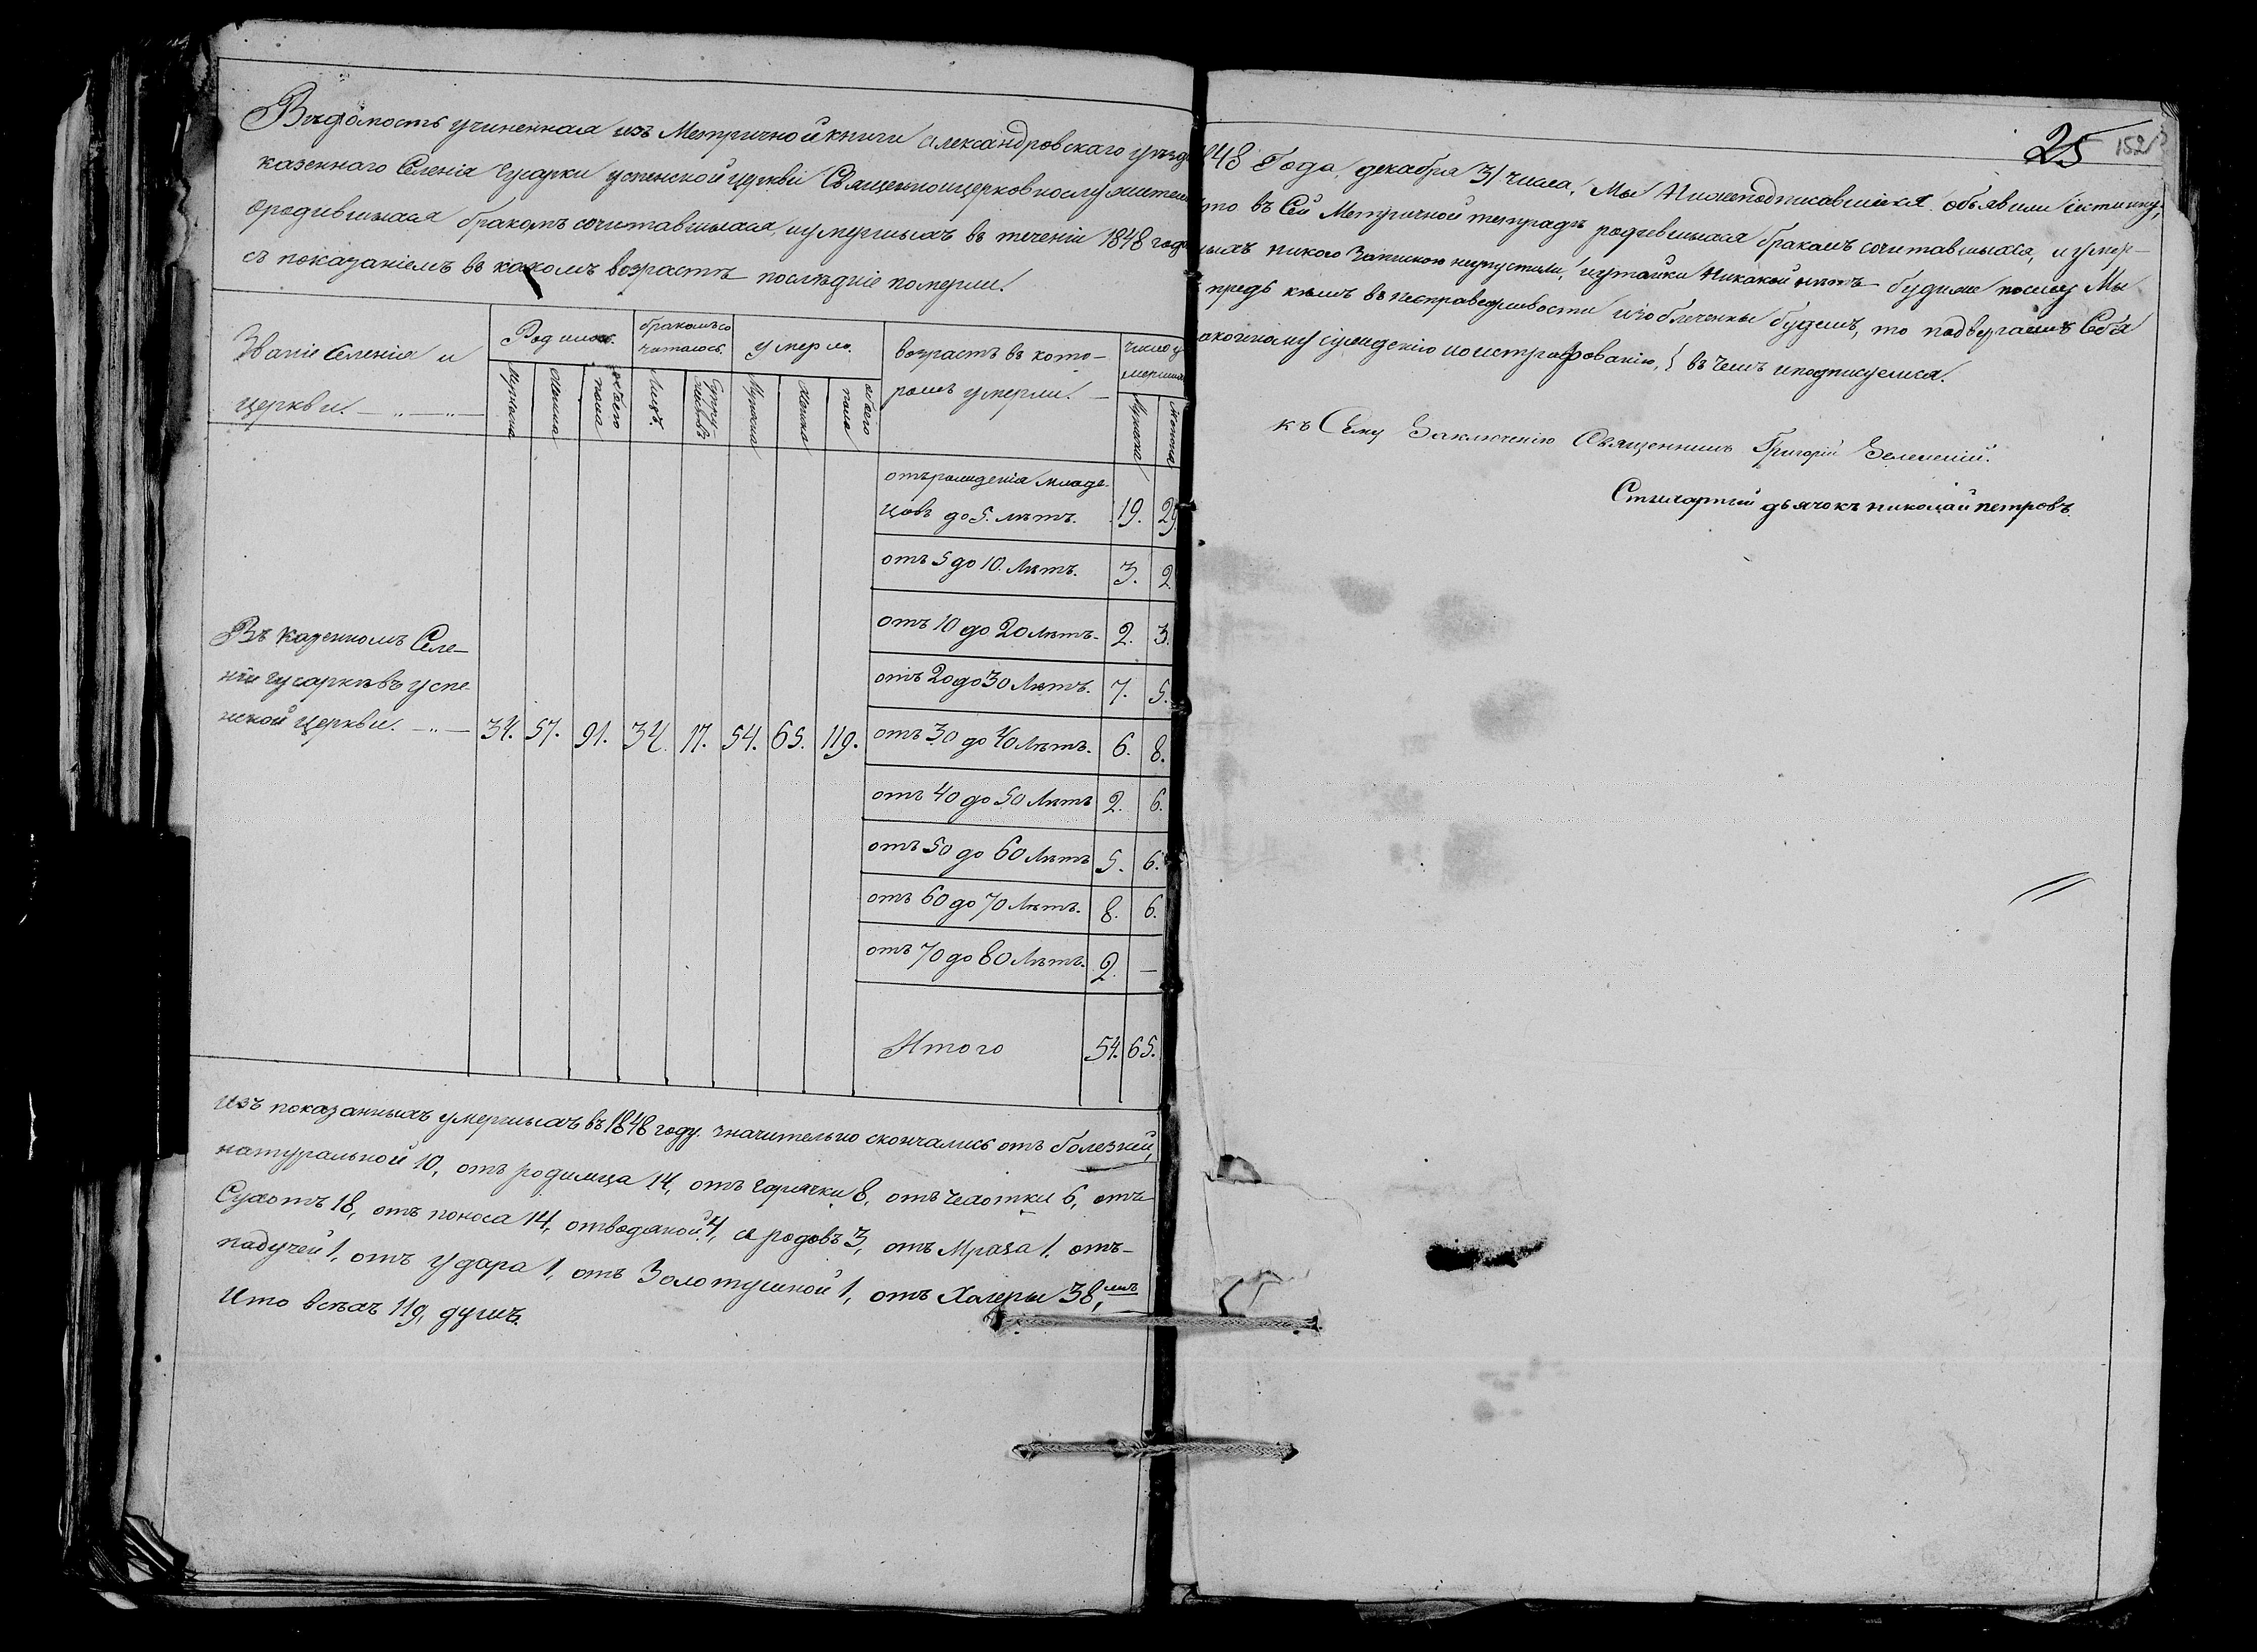 Вѣдомость учиненная изъ Метричной книги Александровскаго уѣзда
казеннаго Селенія Гусарки успенской церкви Священноцерковнослужителями
ородившихся бракомъ сочитавшихся, иумершихъ въ теченіи 1848 года
съ показаніемъ въ какомъ возрастѣ послѣдніе померли.
Званіе Селенія и
церкви.
Родилось.
бракомъ со
читалось.
умерло.
возрастъ въ кото-
ромъ умерли.
число у
мершихъ
Мужеска
Женска
обоего
пола
Лицъ.
Супру-
жествъ
Мужеска
Женска
обоего
пола
Мужеска
Женска
отърожденія младе-
цовъ до 5. лѣтъ. 19. 29.
отъ 5 до 10. Лѣтъ. 3. 2
отъ 10 до 20 Лѣтъ. 2. 3.
отъ 20 до 30 Лѣтъ. 7. 5.
отъ 30 до 40 Лѣтъ. 6. 8.
отъ 40 до 50 Лѣтъ 2. 6.
отъ 50 до 60 Лѣтъ 5. 6.
отъ 60 до 70 Лѣтъ. 8. 6.
отъ 70 до 80 Лѣтъ. 2. —
Итого 54. 65.
Въ казенномъ Селе-
ніи гусаркѣ въ успе-
нской церкви. 34. 57. 91. 34. 17. 54. 65. 119.
Изъ показанныхъ умершихъ въ 1848 году. значительно скончались отъ болезней,
натуральной 10, отъ родимца 14, отъ горячки 8, отъ чахотки 6, отъ
Сухотъ 18, отъ поноса 14, отводяной 4, с родовъ 3, отъ Мраза 1. отъ-
падучей 1, отъ удара 1, отъ Золотушной 1, отъ Халеры 38,
Ито всѣхъ 119, душъ.
25
152
848 Года, декабря 31 числа, Мы Нижеподписавшіеся объявили истинну,
что въ Сей Метричной тетрадѣ родившихся бракомъ сочитавшихся, и умер-
шихъ никого Запискою неупустили, иутайки Никакой нѣтъ будиже послѣ Мы
предъ кѣмъ въ несправедливости изобличены будемъ, то подвергаемъ Себя
законному сужденію иоштрафованію, въ Чемъ иподписуемся.
къ Сему Заключенію Священникъ Григорій Зеленскій.
Стихарный дьячокъ николай петровъ.